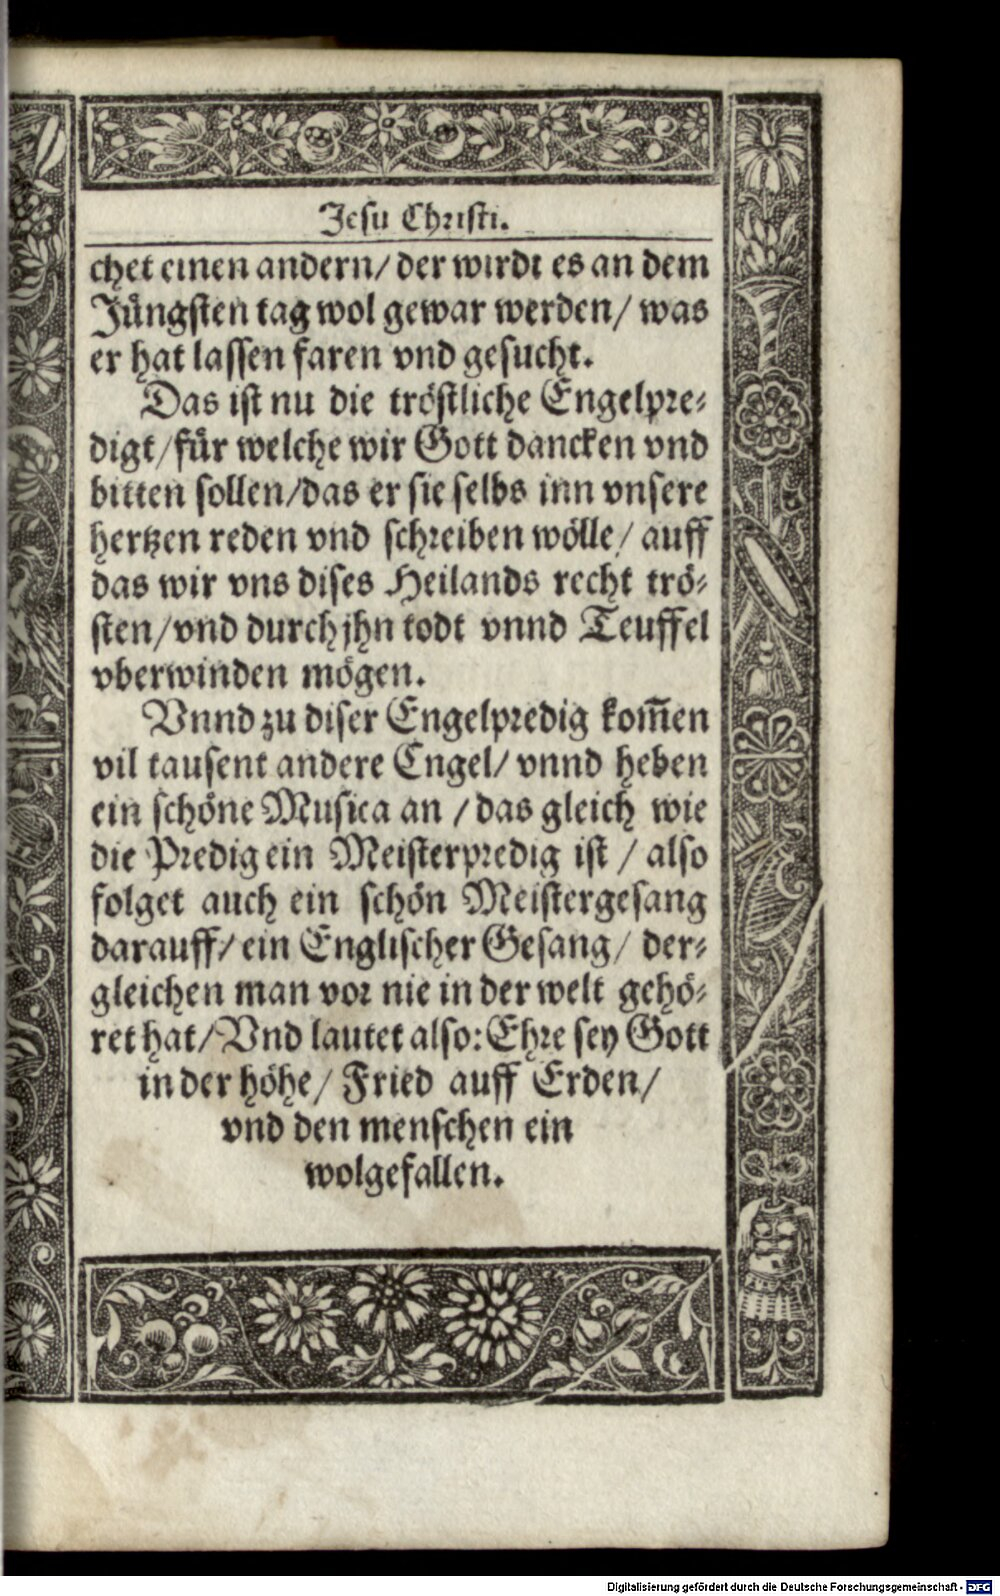 Jesu Christi.
chet einen andern/ der wirdt es an dem
Jüngsten tag wol gewar werden/ was
er hat lassen faren vnd gesucht.
Das ist nu die tröstliche Engelpre⸗
digt/ für welche wir Gott dancken vnd
bitten sollen/ das er sie selbs inn vnsere
hertzen reden vnd schreiben wölle/ auff
das wir vns dises Heilands recht trö⸗
sten/ vnd durch jhn todt vnnd Teuffel
vberwinden mögen.
Vnnd zu diser Engelpredig kom̃en
vil tausent andere Engel/ vnnd heben
ein schöne Musica an / das gleich wie
die Predig ein Meisterpredig ist / also
folget auch ein schön Meistergesang
darauff/ ein Englischer Gesang/ der⸗
gleichen man vor nie in der welt gehö⸗
ret hat/ Vnd lautet also: Ehre sey Gott
in der höhe/ Fried auff Erden/
vnd den menschen ein
wolgefallen.
Digitalisierung gefördert durch die Deutsche Forschungsgemeinschaft - DFG